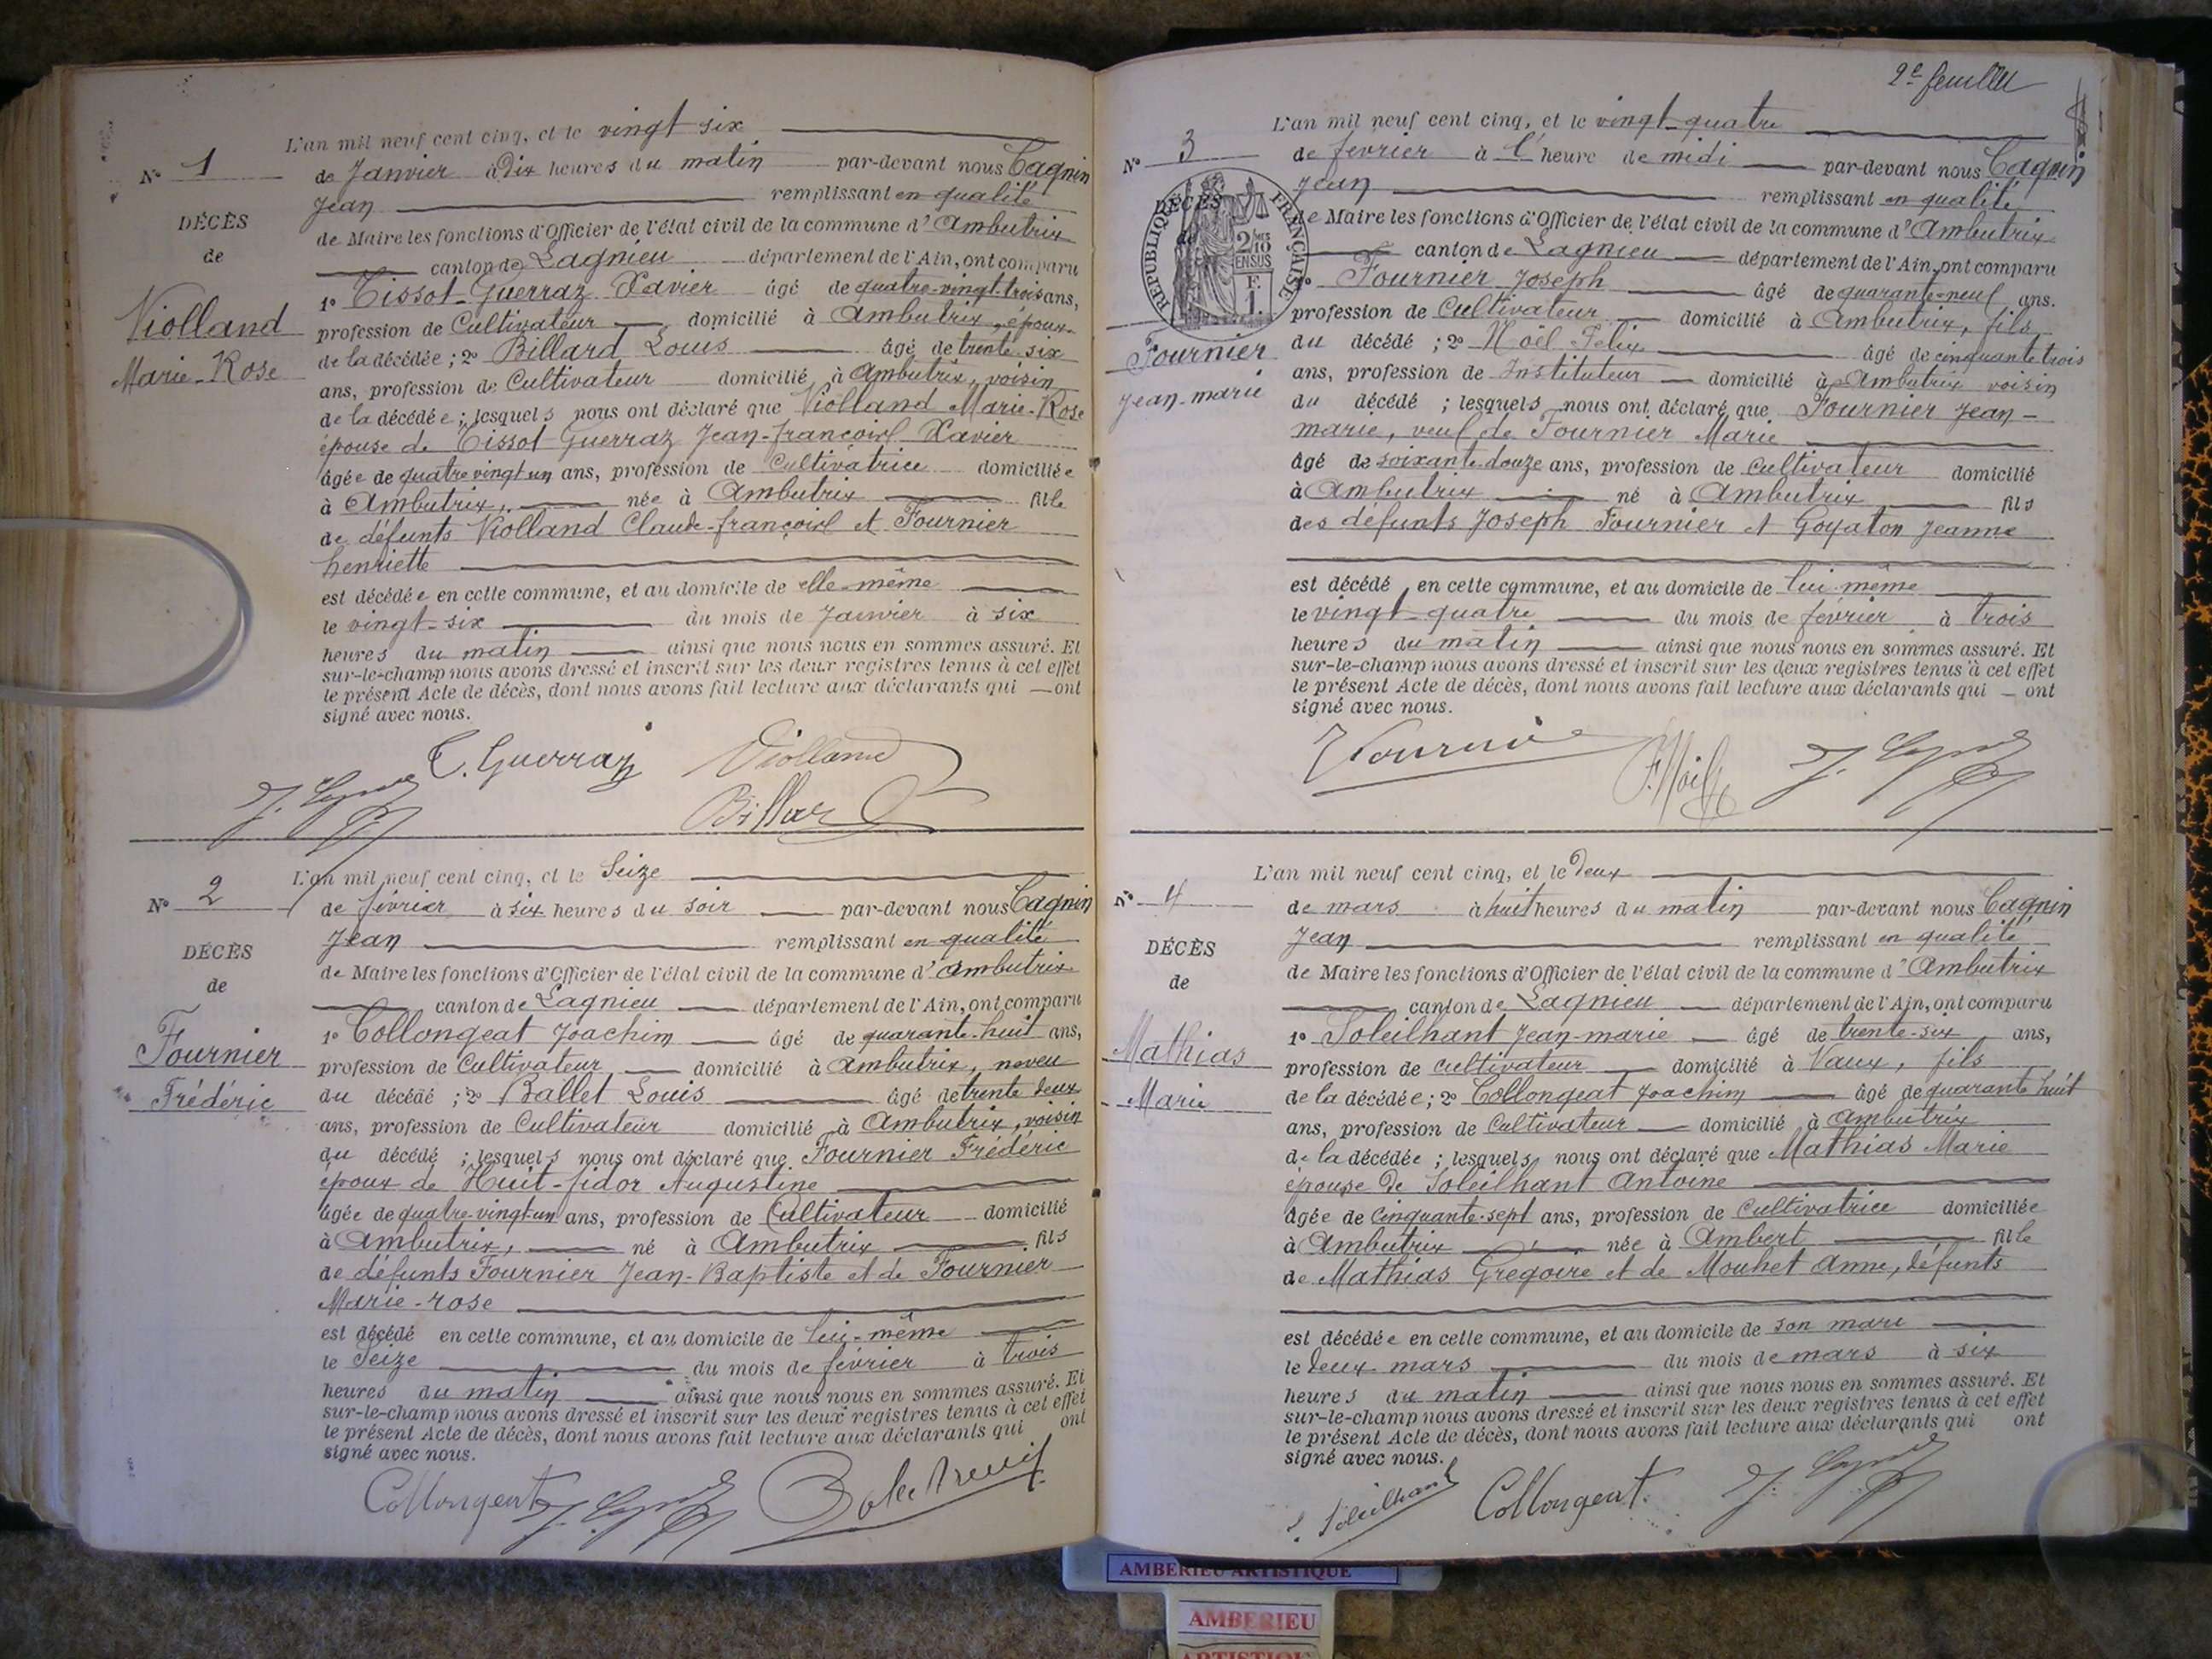 L'an mil neuf cent cinq, et le vingt six
N° 1
de Janvier à Dix heures du matin par-devant nous Cagnin
Jean remplissant en qualité
DÉCÈS
de Maire les fonctions d'Officier de l'état civil de la commune d'Ambutrix
de
canton de Lagnieu département de l'Ain, ont comparu
1° Tissot-Guerraz Xavier âgé de quatre-vingt-trois ans,
Violland
profession de Cultivateur domicilié à Ambutrix, époux
de la décédée; 2° Billard Louis âgé de trente-six
Marie-Rose
ans, profession de Cultivateur domicilié à Ambutrix, voisin
de la décédée; lesquels nous ont déclaré que Violland Marie-Rose
épouse de Tissot-Guerraz Jean-françois Xavier
âgée de quatre vingt un ans, profession de Cultivatrice domiciliée
à Ambutrix, née à Ambutrix fille
de défunts Violland Claude-françois et Fournier
henriette
est décédée en cette commune, et au domicile de elle-même
le vingt-six du mois de Janvier à six
heures du matin ainsi que nous nous en sommes assuré. Et
sur-le-champ nous avons dressé et inscrit sur les deux registres tenus à cet effet
le présent Acte de décès, dont nous avons fait lecture aux déclarants qui ont
signé avec nous.
T. Guerraz Violland
Billard
L'an mil neuf cent cinq, et le Seize
N° 2
de février à six heures du soir par-devant nous Cagnin
Jean remplissant en qualité
DÉCÈS
de Maire les fonctions d'Officier de l'état civil de la commune d'Ambutrix
de
canton de Lagnieu département de l'Ain, ont comparu
1° Collongeat Joachim âgé de quarante-huit ans,
Fournier
profession de Cultivateur domicilié à Ambutrix, neveu
Frédéric
du décédé; 2° Ballet Louis âgé de trente deux
ans, profession de Cultivateur domicilié à Ambutrix, voisin
du décédé; lesquels nous ont déclaré que Fournier Frédéric
époux de Huit-fidor Augustine
âgée de quatre-vingt-un ans, profession de Cultivateur domicilié
à Ambutrix, né à Ambutrix fils
de défunts Fournier Jean-Baptiste et de Fournier
Marie-rose
est décédé en cette commune, et au domicile de lui-même
le Seize du mois de février à trois
heures du matin ainsi que nous nous en sommes assuré. Et
sur-le-champ nous avons dressé et inscrit sur les deux registres tenus à cet effet
le présent Acte de décès, dont nous avons fait lecture aux déclarants qui ont
signé avec nous.
Collongeat
2e feuillet
L'an mil neuf cent cinq, et le vingt-quatre
N° 3
de février à l'heure de midi par-devant nous Cagnin
Jean remplissant en qualité
DÉCÈS
de
RÉPUBLIQUE FRANÇAISE
2/10 EN SUS
F. 1.
de Maire les fonctions d'Officier de l'état civil de la commune d'Ambutrix
canton de Lagnieu département de l'Ain, ont comparu
1° Fournier Joseph âgé de quarante-neuf ans.
profession de Cultivateur domicilié à Ambutrix, fils
Fournier
du décédé; 2° Noël Félix âgé de cinquante trois
Jean-marie
ans, profession de Instituteur domicilié à Ambutrix voisin
du décédé; lesquels nous ont déclaré que Fournier Jean-
marie, veuf de Fournier Marie
âgé de soixante-douze ans, profession de Cultivateur domicilié
à Ambutrix né à Ambutrix fils
des défunts Joseph Fournier et Goyaton Jeanne
est décédé en cette commune, et au domicile de lui-même
le vingt-quatre du mois de février à trois
heures du matin ainsi que nous nous en sommes assuré. Et
sur-le-champ nous avons dressé et inscrit sur les deux registres tenus à cet effet
le présent Acte de décès, dont nous avons fait lecture aux déclarants qui ont
signé avec nous.
Fournier
L'an mil neuf cent cinq, et le Deux
N° 4
de mars à huit heures du matin par-devant nous Cagnin
Jean remplissant en qualité
DÉCÈS
de Maire les fonctions d'Officier de l'état civil de la commune d'Ambutrix
de
canton de Lagnieu département de l'Ain, ont comparu
1° Soleilhant Jean-marie âgé de trente-six ans,
Mathias
profession de cultivateur domicilié à Vaux, fils
Marie
de la décédée; 2° Collongeat Joachim âgé de quarante huit
ans, profession de Cultivateur domicilié à Ambutrix
de la décédée; lesquels nous ont déclaré que Mathias Marie
épouse de Soleilhant Antoine
âgée de Cinquante-sept ans, profession de Cultivatrice domiciliée
à Ambutrix née à Ambert fille
de Mathias Gregoire et de Mouhet Anne, défunts
est décédée en cette commune, et au domicile de son mari
le Deux mars du mois de mars à six
heures du matin ainsi que nous nous en sommes assuré. Et
sur-le-champ nous avons dressé et inscrit sur les deux registres tenus à cet effet
le présent Acte de décès, dont nous avons fait lecture aux déclarants qui ont
signé avec nous.
Soleilhant Collongeat
AMBERIEU ARTISTIQUE
AMBERIEU
ARTISTIQUE